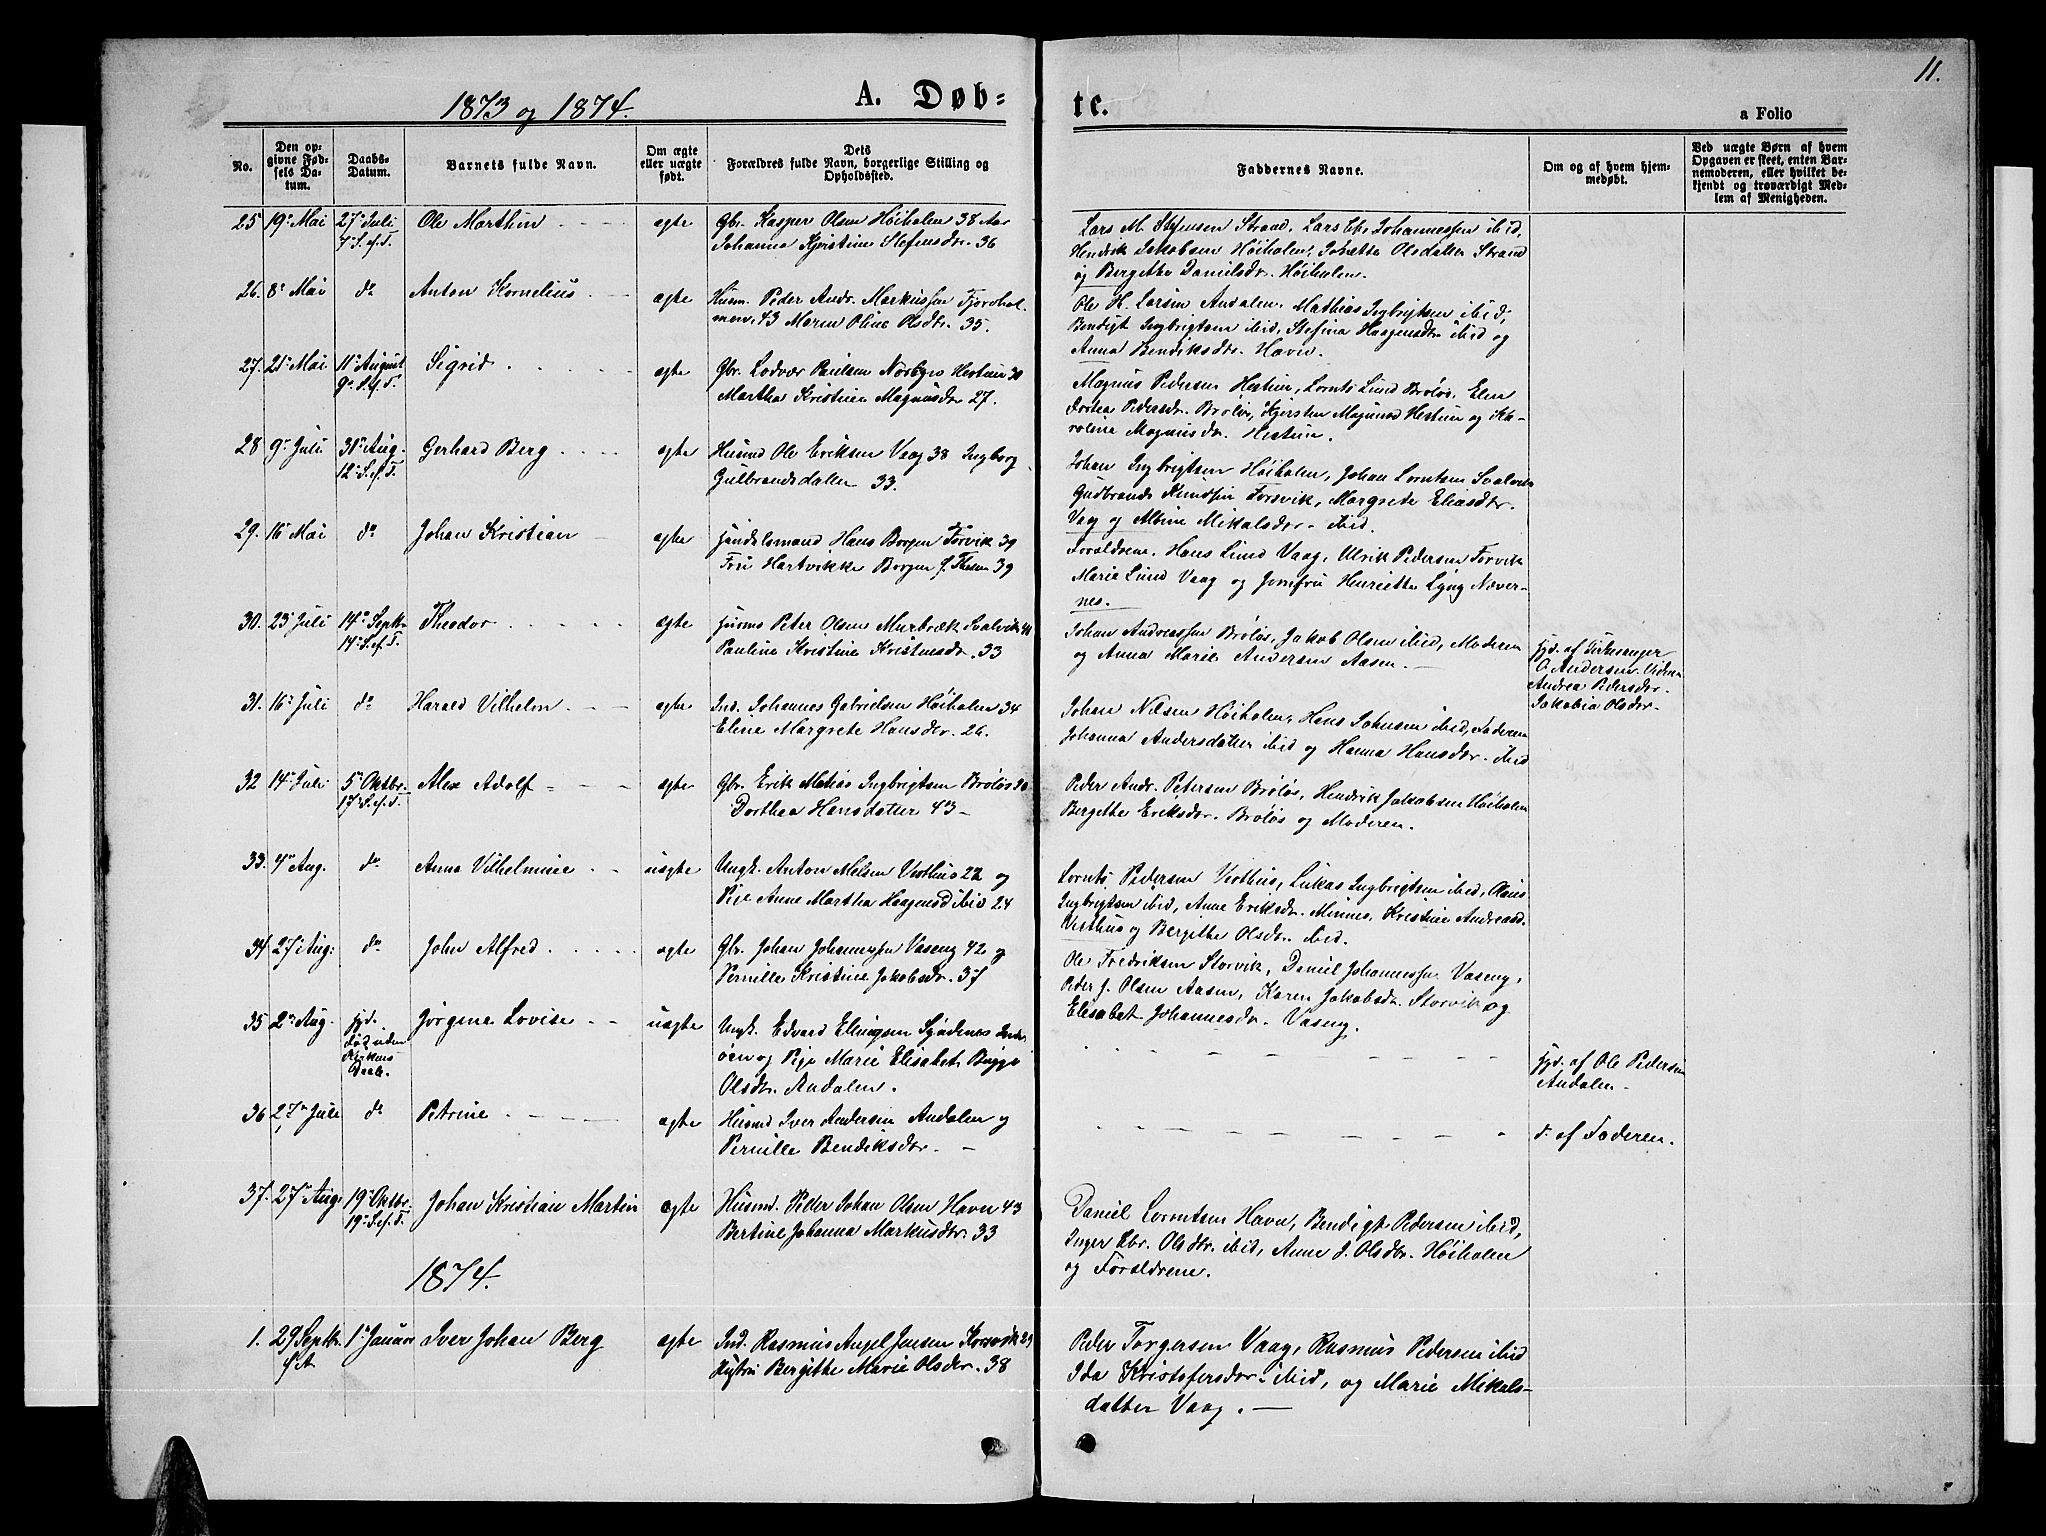 11.
1873 og 1874.
A. Døb=
te.
a Folio
No.
Den op-
givne Fød-
sels Da-
tum.
Daabs-
Datum.
Barnets fulde Navn.
Om ægte
eller uægte
født.
Dets
Forældres fulde Navn, borgerlige Stilling og
Opholdssted.
Faddernes Navne.
Om og af hvem hjem-
medøbt.
Ved uægte Børn af hvem
Opgaven er skeet, enten Bar-
nemoderen, eller hvilket be-
kjendt og troværdigt Med-
lem af Menigheden.
25 19 Mai 27 Juli Ole Marthin ægte Gbr. Kasper Olsen Høiholm 38 Aar
7 S. e. T. Johanna Kristine Stefensdr. 36
Lars M. Stefensen Strand, Lars Johannessen ibid,
Hendrik Jakobsen Høiholm, Olsdatter Strand
og Bergethe Danielsdr. Høiholm.
26. 8 Mai do Anton Kornelius ægte Husm. Peder Andr. Markussen Fjordhol-
men, 43 Maren Oline Olsdtr. 35.
Ole H. Larsen Andalen, Mathias Ingbrigtsen ibid,
Bendigt Ingbrigtsen ibid, Stefina Haagensdtr ibid og
Anna Bendiksdtr. Havn.
27. 21 Mai 11 August Sigrid ægte Gbr. Lodvær Paulsen Nordgro Hestun 30
9. S. e. T. Martha Kristine Magnusdr 27.
Magnus Pedersen Hestun, Lornts Lund Brøløs, Elen
Dorthea Pedersdr. Brøløs, Kjersten Magnusd Hestun og Ka-
roline Magnusdr. Hestun.
28 9 Juli 31 Aug. Gerhard Berg ægte Husmd Ole Eriksen Vaag 38 Ingborg
12 S. e. T. Gulbrandsdatter 33.
Johan Ingbrigtsen Høiholm, Johan Lorntsen Svalvik
Gudbrand Knudsen Forvik, Margrete Eliasdtr.
Vaag og Albine Mikalsdtr. ibid.
29. 16 Mai do Johan Kristian ægte Handelsmand Hans Borgen Forvik 39
Fru Hartvikke Borgen f. 39
Forældrene. Hans Lund Vaag, Ulrik Pedersen Forvik
Marie Lund Vaag og Jomfru Henriette Lyng Næver-
nes.
30. 23 Juli 14 Septb. Theodor ægte Husmd Peter Olsen Murbræk Svalvik 41
14 S. e. T. Pauline Kristine Kristensdr. 33
Johan Andreassen Brøløs, Jakob Olsen ibid, Moderen
og Anna Marie Andersen Aasen.
hjd. af Kirkesanger
O. Andersen. Vidner
Andrea Pedersdtr.
Jakobia Olsdtr.
31. 16 Juli do Harald Vilhelm ægte Ind. Johannes Gabrielsen Høiholm 34
Eline Margrete Hansdtr. 26.
Johan Nilsen Høiholm, Hans Johnsen ibid, Faderen
Johanna Andersdatter ibid og Hanna Hansdtr. ibid
32 14 Juli 5 Oktbr. Alex Adolf ægte Gbr. Erik Matias Ingbrigtsen Brøløs 30
17 S. e. T. Dorthea Hansdatter 43
Peder Andr. Petersen Brøløs, Hendrik Jakobsen Høiholm
Bergethe Eriksdr. Brøløs og Moderen.
33. 4 Aug. do Anna Vilhelmine uægte Ungk. Anton Nilsen Visthus 22 og
Pige Anne Martha Haagensd ibid 24
Lornts Pedersen Visthus, Lukas Ingbrigtsen ibid, Olaus
Ingbrigtsen ibid, Anne Eriksdr. Minnes, Kristine Andreasd.
Visthus og Bergithe Olsdr. ibid.
34. 27 Aug. do John Alfred ægte Gbr. Johan Johannessen Vaseng 42 og
Pernille Kristine Jakobsdr. 37
Ole Fredriksen Storvik, Daniel Johannessen Vaseng,
Peder J. Olsen Aasen, Karen Jakobsdr. Storvik og
Elisabet Johannesdr. Vaseng.
35 2 Aug. hjd. Jørgine Lovise uægte Ungk. Edvard Ellingsen Sjøndenes
Død uden
Kirkens
Daab.
øen og Pige Marie Elisabet Bugge
Olsdtr. Andalen.
hjd. af Ole Pedersen
Andalen
36 27 Juli do Petrine ægte Husmd Iver Andersen Andalen og
Pernille Bendiksdtr.
do. af Faderen.
37. 27 Aug. 19 Oktbr. Johan Kristian Martin ægte Husmd. Peder Johan Olsen Havn 43
19 S. e. T. Bertine Johanna Markusdtr. 33
Daniel Lorntsen Havn, Bendigt Pedersen ibid,
Inger Olsdtr. ibid, Anne J. Olsdtr. Høiholm
og Forældrene.
1874.
1. 29 Septb. 1 Januar Iver Johan Berg ægte Ind. Rasmus Angel Jensen Korsvik 29
f. A. Hustru Bergithe Marie Olsdtr. 38
Peder Torgersen Vaag, Rasmus Pedersen ibid
Ida Kristofersdtr. ibid, og Marie Mikals-
datter Vaag.